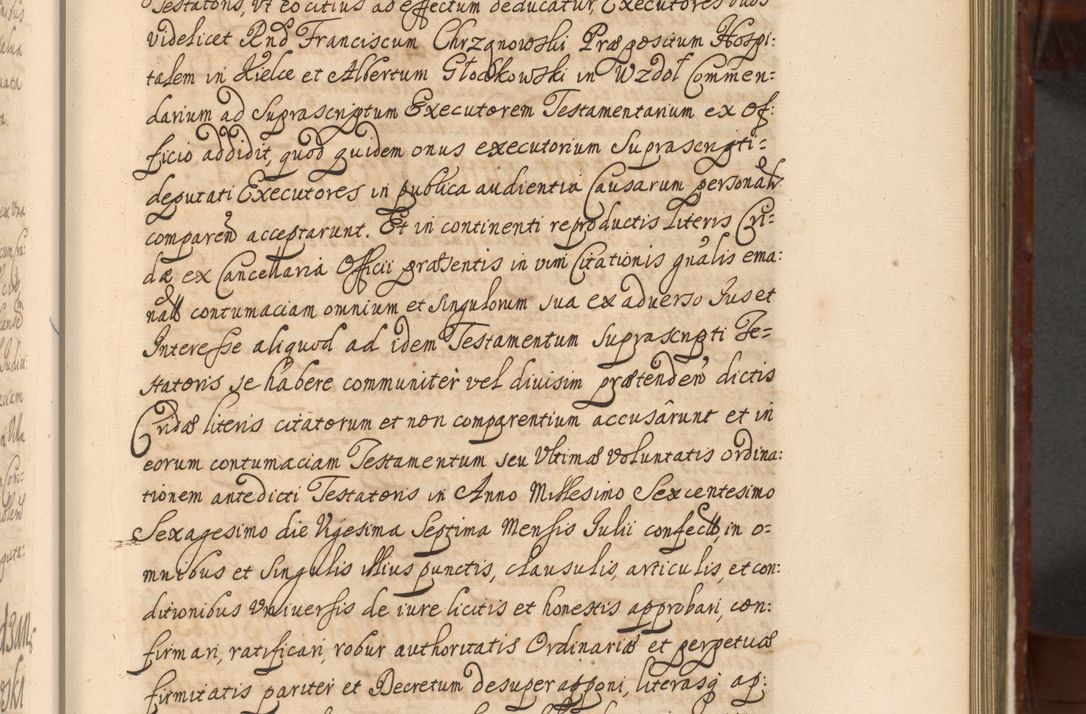 Testatoris, ut eo citius ad effectum deducatur, Executores duos
videlicet Rnd Franciscum Chrzanowski Præpositum Hospi:
talem in Kielce et Albertum Głodkowski in Wzdoł Commen:
darium ad Suprascriptum Executorem Testamentarium ex Of:
ficio addidit, quod quidem onus executorium Suprascripti:
deputati Executores in publica audientia Causarum personalr
comparen acceptarunt. Et in continenti reproductis Literis Cri:
dæ ex Cancellaria Officii præsentis in vim Citationis gnalis ema:
natt contumaciam omnium et singulorum sua ex adverso Ius et
Interesse aliquod ad idem Testamentum suprascripti Te=
statoris se habere communiter vel divisim prætenden dictis
Cridæ literis citatorum et non comparentium accusârunt et in
eorum contumaciam Testamentum seu Ultimæ Voluntatis ordina:
tionem antedicti Testatoris in Anno Millesimo Sexcentesimo
Sexagesimo die Vigesima Septima Mensis Iulii confectt, in o=
mnibus et singulis illius punctis, clausulis, articulis, et con:
ditionibus universis de iure licitis et honestis approbari, con:
firmari, ratificari, robur authoritatis Ordinariæ et perpetuæ
firmitatis pariter et Decretum desuper apponi, literasq ap: